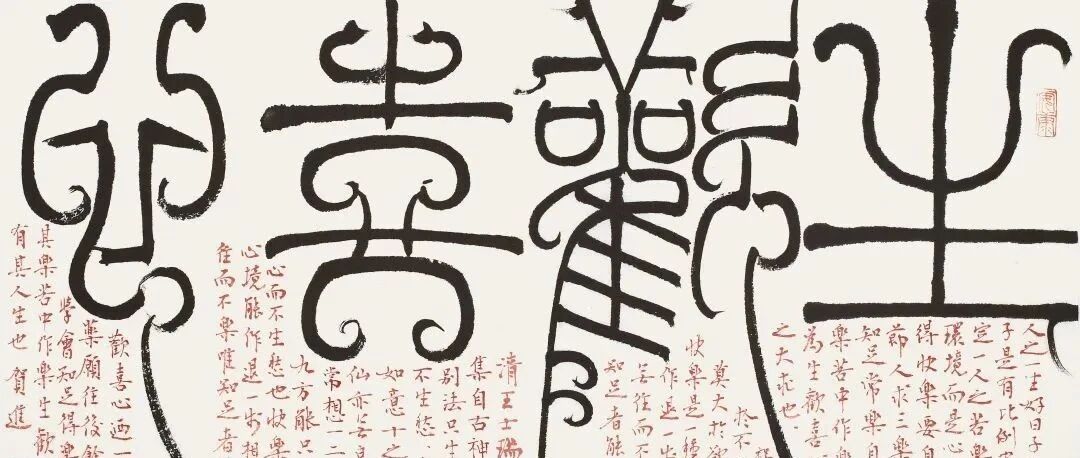 生歡喜心
人之一生好日
子是有比例
定一人之苦
環境而是心
得快樂要自
節人求三樂
知足常樂自
樂苦中作樂
為生歡喜
之大求也
於不
莫大於
快樂是一種
作退一步
無往而不
知足者能
清王士
集自古神
別法只生
不生愁
如意十之
仙亦無自
常想一二
九方能只
心而不生愁也快樂
心境能作退一步相
往而不樂唯知足者
歡喜心迺一
藥願往後餘
學會知足得樂
其樂苦中作樂生歡
有其人生也賀進